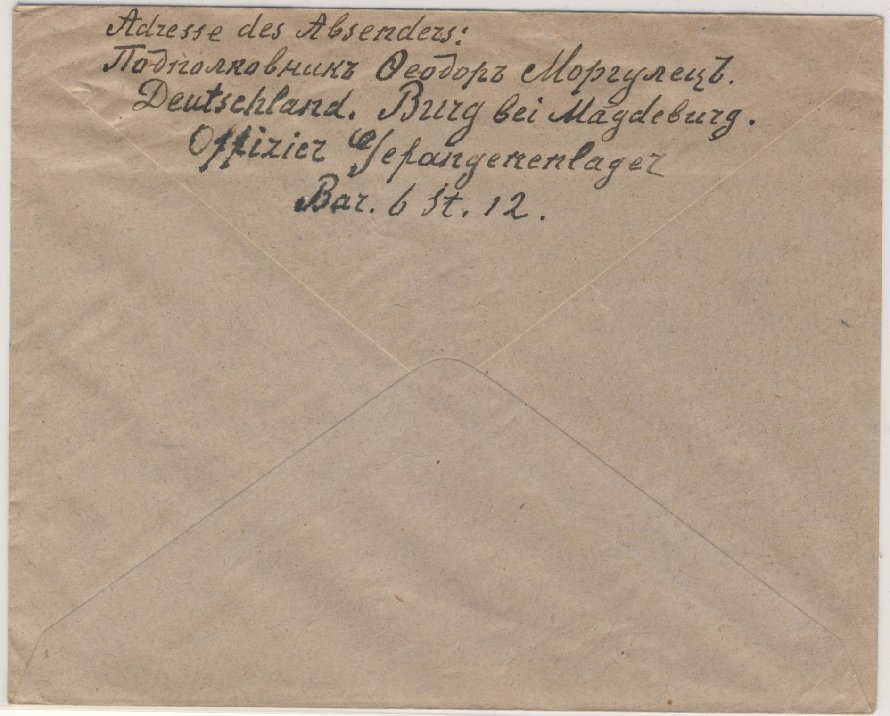 Adresse des Absenders:
Подполковникъ Ѳеодоръ Моргулецъ.
Deutschland. Burg bei Magdeburg.
Offizier Gefangenenlager
Bar. 6 St. 12.